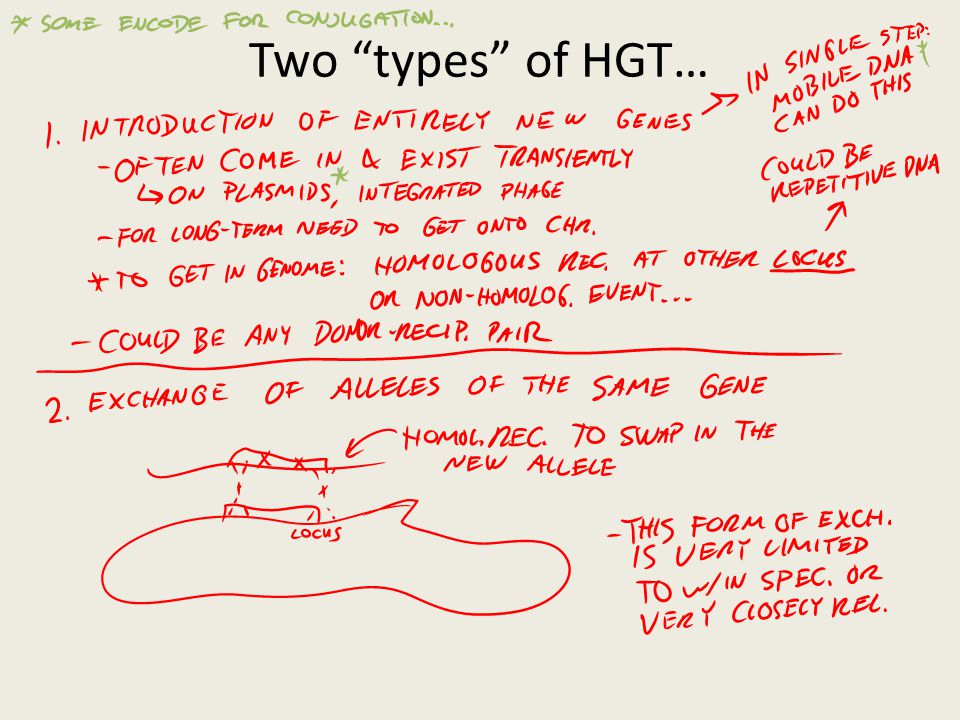 * SOME ENCODE FOR CONJUGATION...
Two “types” of HGT…
1. INTRODUCTION OF ENTIRELY NEW GENES
IN SINGLE STEP:
MOBILE DNA *
CAN DO THIS
- OFTEN COME IN & EXIST TRANSIENTLY
↳ ON PLASMIDS*, INTEGRATED PHAGE
- FOR LONG-TERM NEED TO GET ONTO CHR.
COULD BE
REPETITIVE DNA
* TO GET IN GENOME: HOMOLOGOUS REC. AT OTHER LOCUS
OR NON-HOMOLOG. EVENT...
- COULD BE ANY DONOR-RECIP. PAIR
2. EXCHANGE OF ALLELES OF THE SAME GENE
HOMOL. REC. TO SWAP IN THE
NEW ALLELE
LOCUS
- THIS FORM OF EXCH.
IS VERY LIMITED
TO W/IN SPEC. OR
VERY CLOSELY REL.